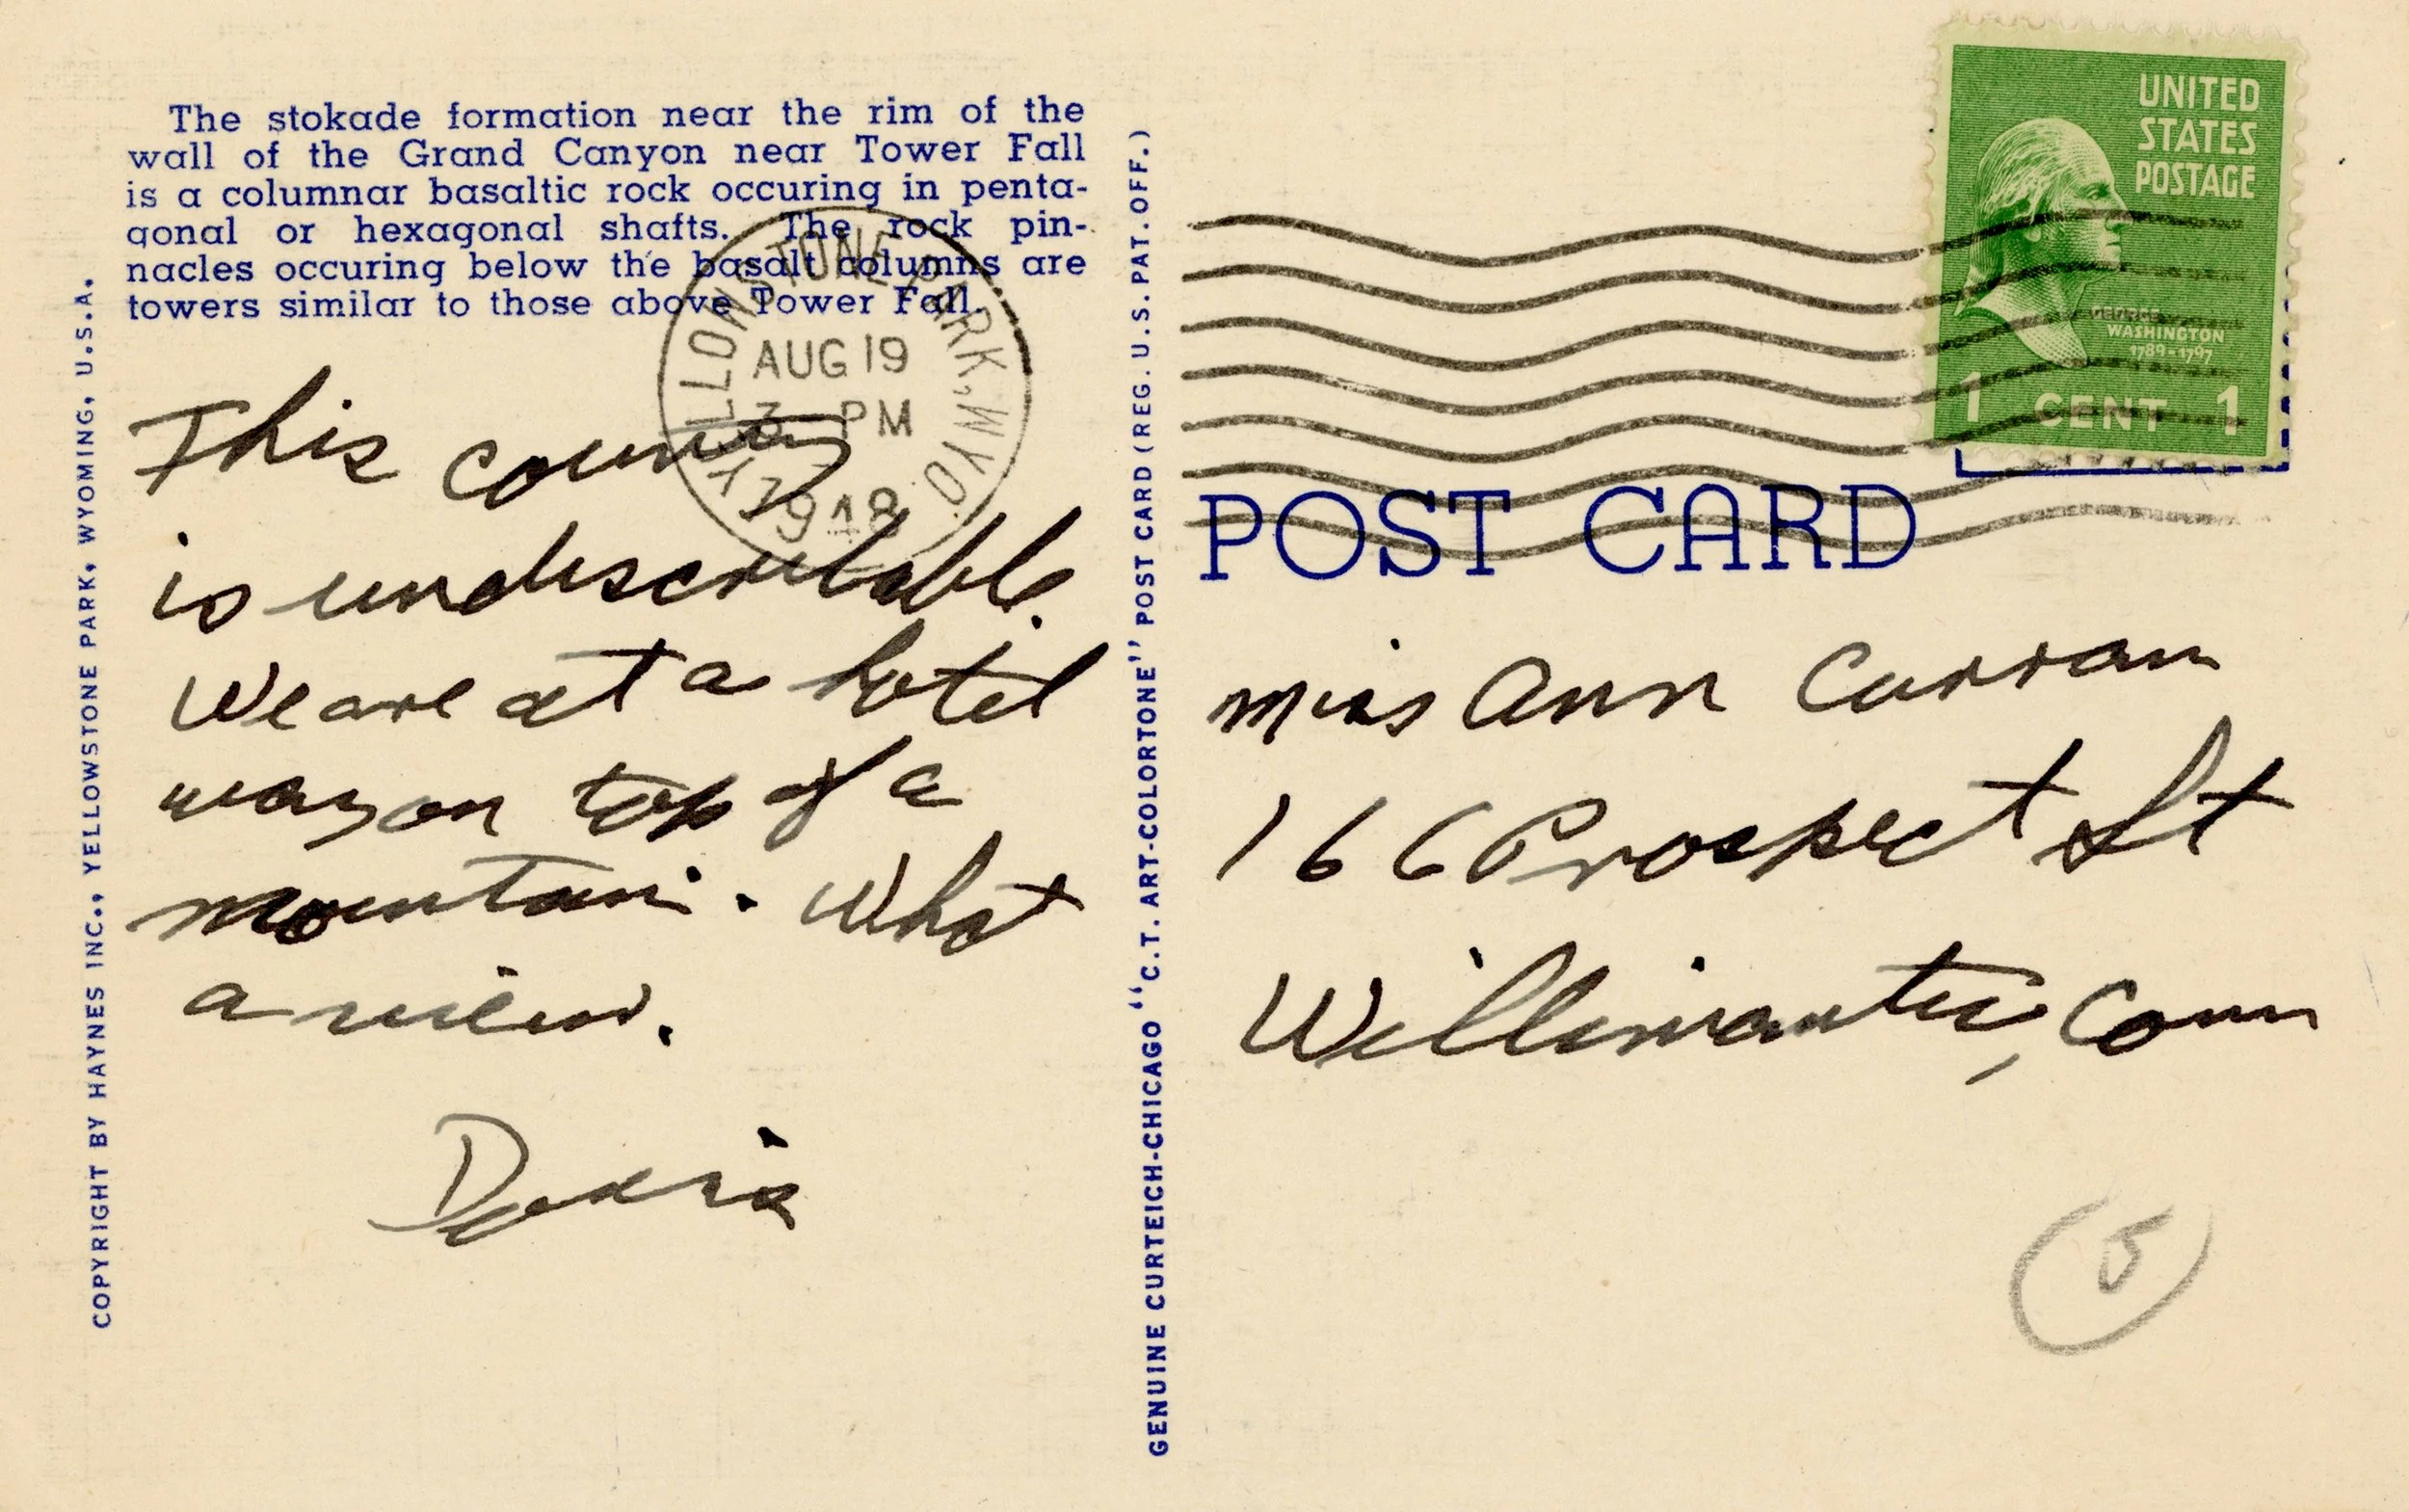 The stokade formation near the rim of the
wall of the Grand Canyon near Tower Fall
is a columnar basaltic rock occuring in penta-
gonal or hexagonal shafts. The rock pin-
nacles occuring below the basalt columns are
towers similar to those above Tower Fall.
YELLOWSTONE PARK, WYO.
AUG 19
3 - PM
1948
This country
is undiscribable.
We are at a hotel
way on top of a
mountain. What
a view.
Doris
COPYRIGHT BY HAYNES INC., YELLOWSTONE PARK, WYOMING, U.S.A.
GENUINE CURTEICH-CHICAGO "C.T. ART-COLORTONE" POST CARD (REG. U.S. PAT. OFF.)
UNITED
STATES
POSTAGE
GEORGE
WASHINGTON
1789-1797
1 CENT 1
POST CARD
Miss Ann Curran
166 Prospect St
Willimantic, Conn
5